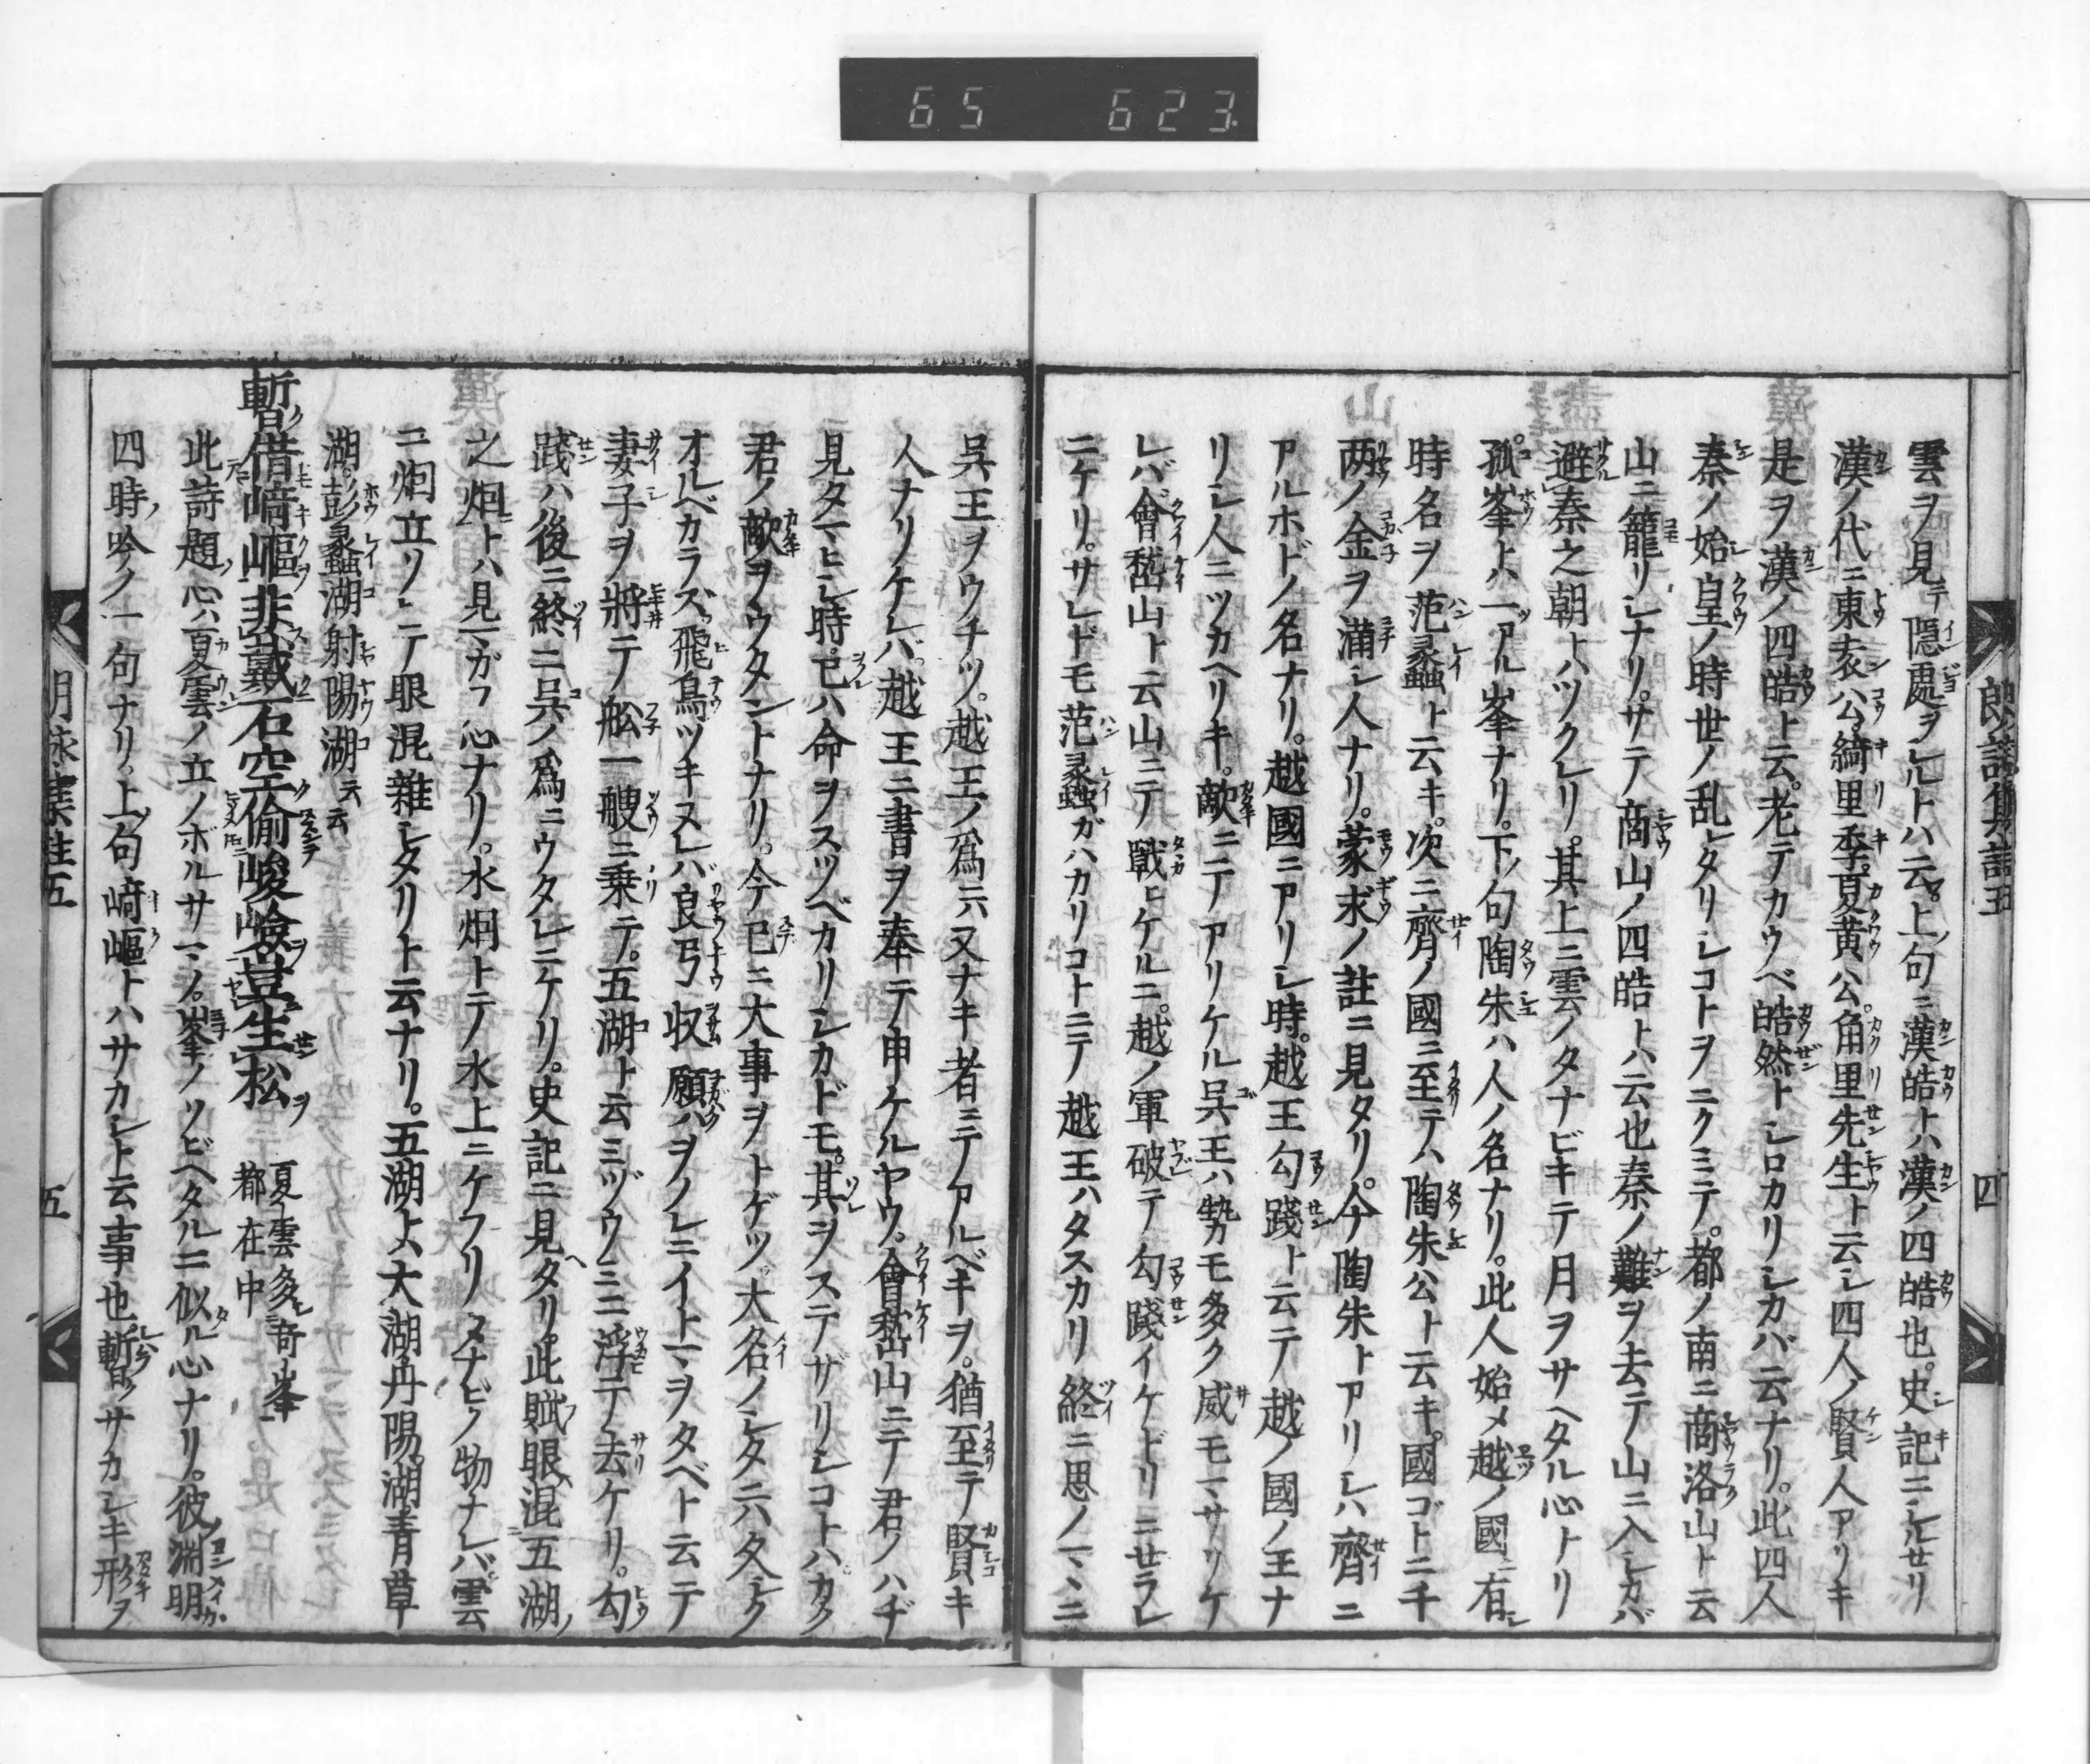 65 623
雲ヲ見テ隠處ヲシルトハ云。上ノ句ニ漢皓トハ漢ノ四皓也。史記ニシルセリ
漢ノ代ニ東袁公。綺里季。夏黄公。角里先生ト云シ四人ノ賢人アリキ
是ヲ漢ノ四皓ト云。老テカウベ皓然トシロカリシカバ云ナリ。此四人
秦ノ始皇ノ時世ノ乱レタリシコトヲニクミテ。都ノ南ニ商洛山ト云
山ニ籠リシナリ。サテ商山ノ四皓トハ云也秦ノ難ヲ去テ山ニ入シカバ
避秦之朝トハツクレリ。其上ニ雲ノタナビキテ月ヲサヘタル心トリ
孤峯トハ一ツアル峯ナリ。下ノ句陶朱ハ人ノ名ナリ。此人始メ越ノ國ニ有シ
時名ヲ范蠡ト云キ。次ニ齊ノ國ニ至テハ陶朱公ト云キ。國ゴトニ千
两ノ金ヲ満シ人ナリ。蒙求ノ註ニ見タリ。今陶朱トアリシハ齊ニ
アルホドノ名ナリ。越國ニアリシ時。越王勾踐ト云テ越ノ國ノ王ナ
リシ人ニツカヘリキ。敵ニテアリケル呉王ハ勢モ多ク威モマサリケ
レバ會嵆山ト云山ニテ戰ヒケルニ。越ノ軍破テ勾踐イケドリニせラレ
ニケリ。サレドモ范蠡ガハカリコトニテ越王ハタスカリ終ニ思ノマヽニ
朗詠集註五
四
呉王ヲウチツ。越王ノ爲ニハ又ナキ者ニテアルベキヲ。猶至テ賢キ
人ナリケレバ越王ニ書ヲ奉テ申ケルヤウ。會嵆山ニテ君ノハヂ
見タマヒシ時。已ハ命ヲスツベカリシカドモ。其ヲステザリシコトハカク
君ノ敵ヲウタントナリ。今已ニ大事ヲトゲツ。大名ノシタニハ久シク
オルベカラズ。飛鳥ツキヌレバ良弓収願ハヲノレニイトマヲタベト云テ
妻子ヲ將テ舩一艘ニ乗テ。五湖ト云ミヅウミニ浮テ去ケリ。勾
踐ハ後ニ終ニ呉ノ爲ニウタレニケリ。史記ニ見ヘタリ。此賦眼混五湖ノ
之烟トハ見マガフ心ナリ。水烟トテノ水上ニケフリノタナビク物ナレバ。雲
ニ烟立ソヒテ眼混雑シタリト云ナリ。五湖トハ大湖。丹陽湖。青草
湖。彭蠡湖。射陽湖。云云
暫借﨑嶇非戴石空偷峻嶮豈生松 夏雲多竒峯
都在中
此詩題ノ心ハ夏雲ノ立ノボルサマノ。峯ノソビヘタルニ似タル心ナリ。彼淵明
四時吟ノ一句ナリ。上句﨑嶇トハサカシト云事也暫クサカシキ形ヲ
朗詠集註五
五